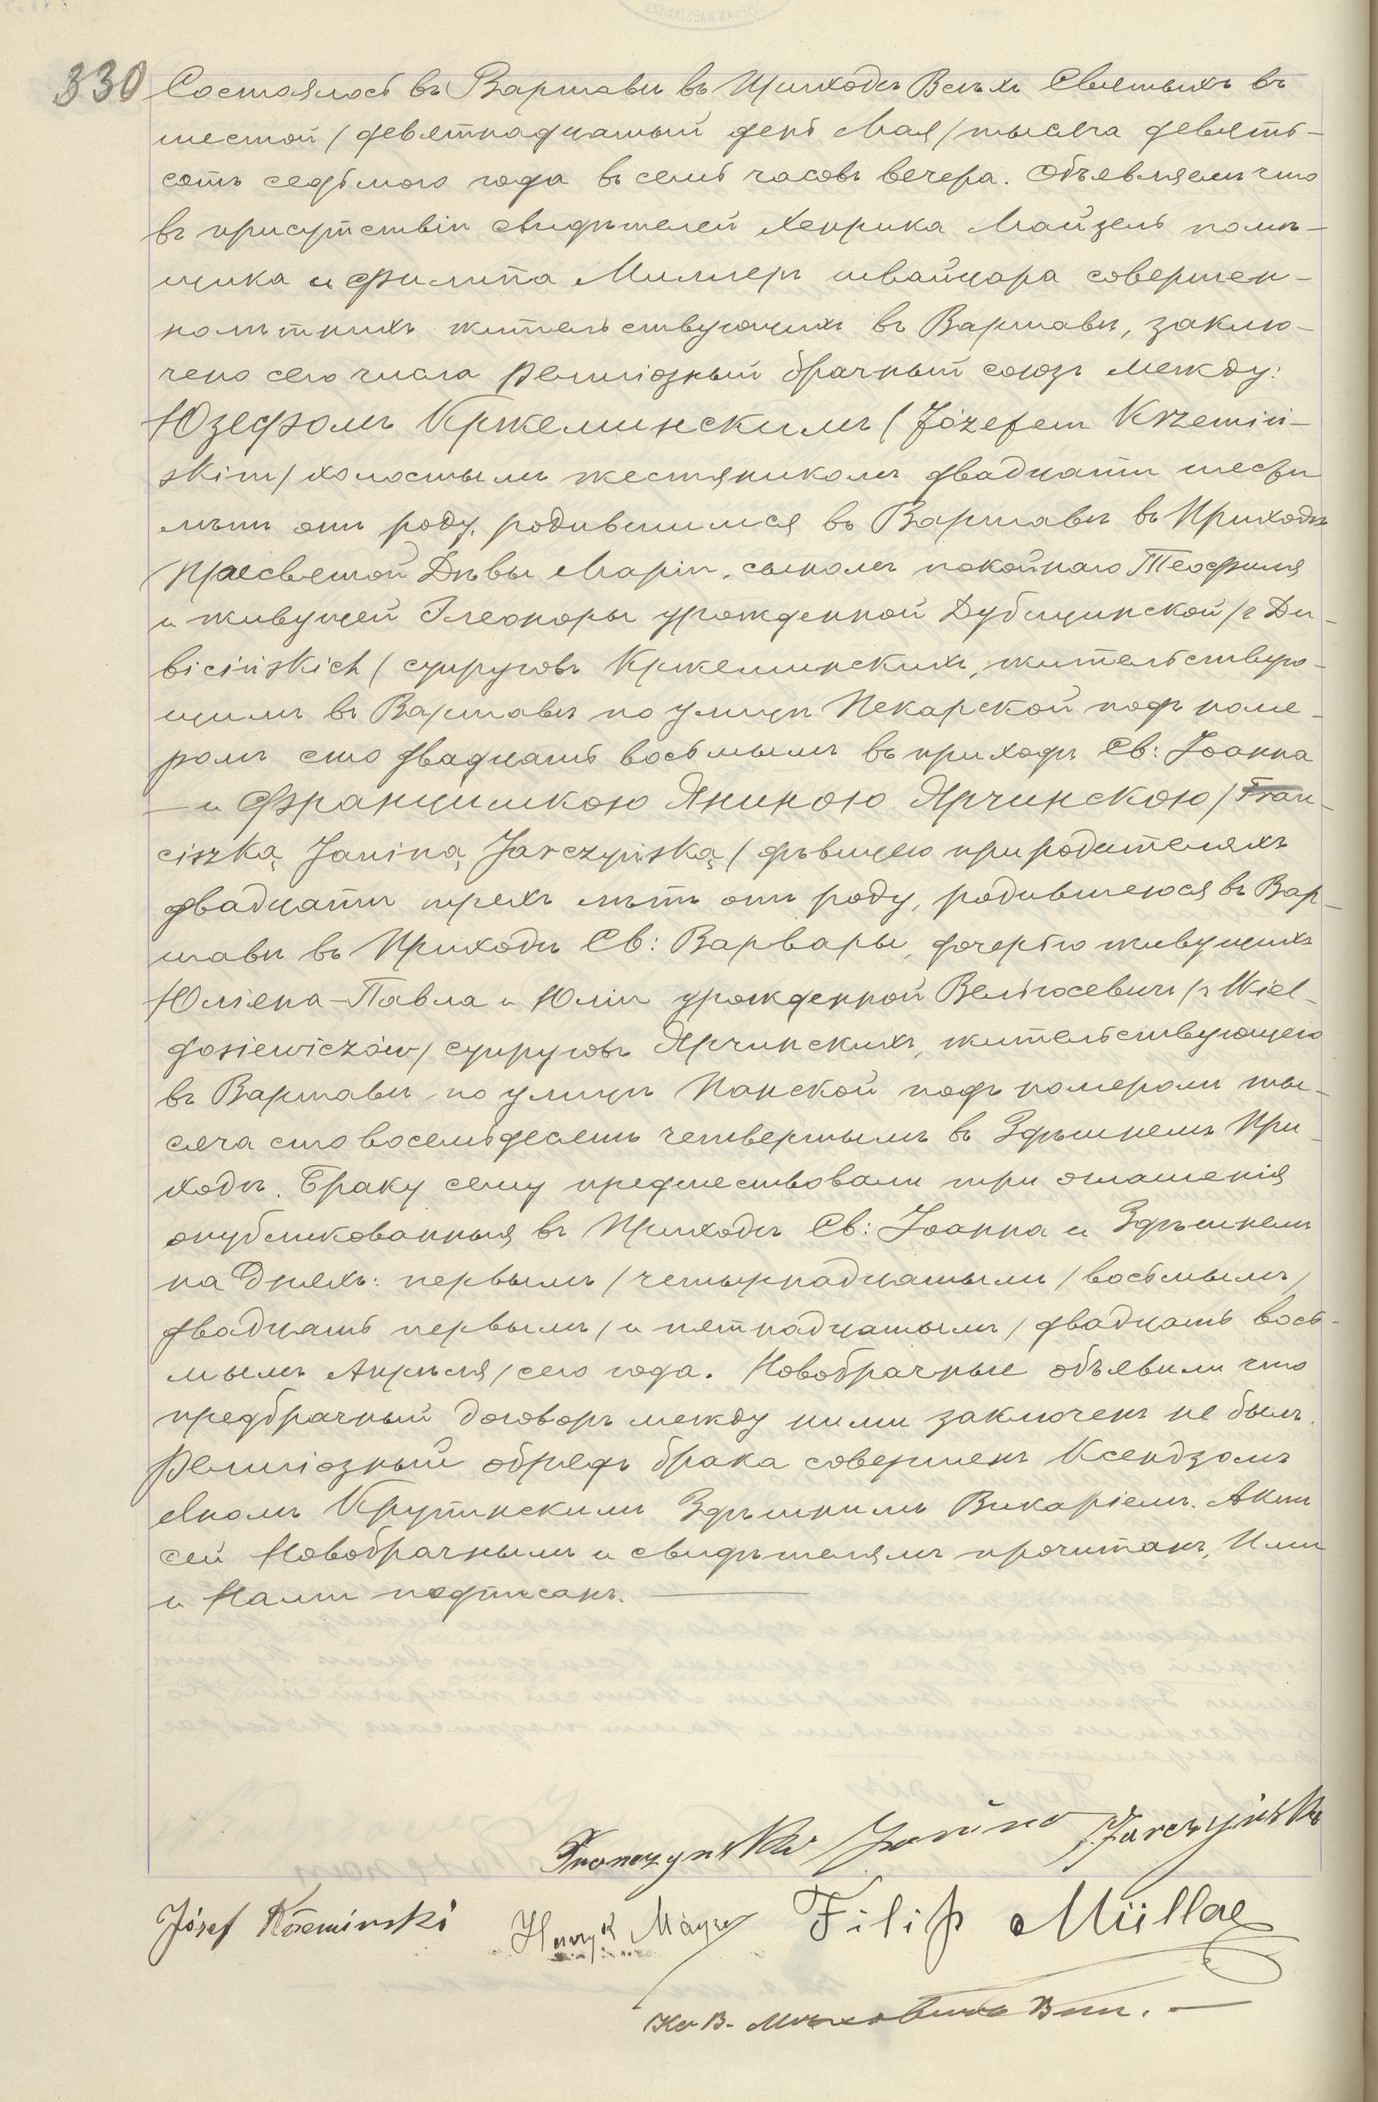 330 Состоялось въ Варшавѣ въ Приходѣ Всѣхъ Святыхъ въ
шестой / девятнадцатый день Мая / тысяча девять-
сотъ седьмого года въ семь часовъ вечера. Объявляемъ что
въ присутствіи свидѣтелей Хенрика Майзель помѣ-
щика и Филипа Миллеръ швайцара совершен-
нолѣтнихъ жительствующихъ въ Варшавѣ, заклю-
чено сего числа Религіозный брачный союзъ между:
Юзефомъ Кржеминскимъ / Józefem Krzemiń-
skim / холостымъ жестяникомъ двадцати шести
лѣтъ отъ роду, родившимся въ Варшавѣ въ Приходѣ
Пресвятой Дѣвы Маріи, сыномъ покойнаго Теофиля
и живущей Элеоноры урожденной Дубицинской / z Du-
bicińskich / супруговъ Кржеминскихъ, жительствую-
щимъ въ Варшавѣ по улицѣ Пекарской подъ номе-
ромъ сто двадцать восьмымъ въ приходѣ Св: Іоанна
— и Францишкою Яниною Ярчинскою / Fran-
ciszką Janiną Jarczyńską / дѣвицею при родителяхъ
двадцати трехъ лѣтъ отъ роду, родившеюся въ Вар-
шавѣ въ Приходѣ Св: Варвары, дочерью живущихъ
Юліяна-Павла и Юліи урожденной Велгосевичъ / z Wiel-
gosiewiczów / супруговъ Ярчинскихъ, жительствующею
въ Варшавѣ по улицѣ Панской подъ номеромъ ты-
сяча сто восемьдесятъ четвертымъ въ Здѣшнемъ При-
ходѣ. Браку сему предшествовали три оглашенія
опубликованныя въ Приходѣ Св: Іоанна и Здѣшнемъ
на Дняхъ: первымъ / четырнадцатымъ / восьмымъ /
двадцать первымъ / и пятнадцатымъ / двадцать вось-
мымъ Апрѣля / сего года. Новобрачные объявили что
предбрачный договоръ между ними заключенъ не былъ.
Религіозный обрядъ брака совершенъ Ксендзомъ
Яномъ Крупинскимъ Здѣшнимъ Викаріемъ. Актъ
сей Новобрачнымъ и свидѣтелямъ прочитанъ, Ими
и Нами подписанъ. —
Janina Jarczyńska
Józef Krzemiński Henryk Filip Müller